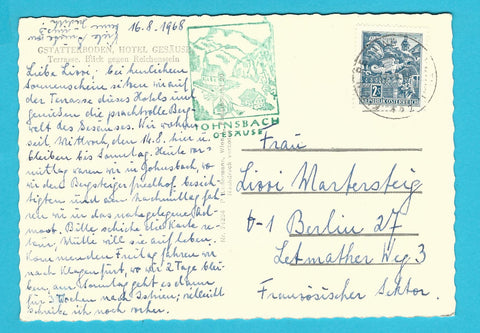 16.8.1968
GSTATTERBODEN, HOTEL GESÄUSE
Terrasse. Blick gegen Reichenstein
Liebe Lissi! Bei herrlichem
Sonnenschein sitzen wir auf
der Terrasse dieses Hotels und
genießen die prachtvolle Berg-
welt des Gesäuses. Wir wohnen
seit Mittwoch, den 14.8. hier u.
bleiben bis Samstag. Heute vor-
mittag waren wir in Johnsbach, wo
wir den Bergsteigerfriedhof besich-
tigten und am Nachmittag fah-
ren wir in das nahegelegene Ad-
mont. Bitte schicke die Karte re-
tour, Mutti will sie aufheben.
Kommenden Freitag fahren wir
nach Klagenfurt, wo wir 2 Tage blei-
ben, am Montag geht es dann
für 3 Wochen nach Italien; vielleicht
schreibe ich noch vorher.
JOHNSBACH
GESÄUSE
2S
REPUBLIK ÖSTERREICH
Frau
Lissi Martersteig
D-1 Berlin 27
Letmather Weg 3
Französischer Sektor.